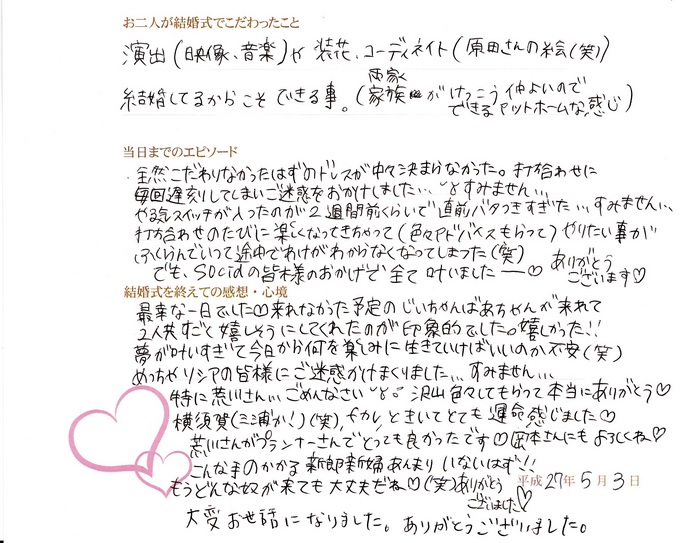 お二人が結婚式でこだわったこと
演出(映像、音楽)や装花、コーディネイト(原田さんの絵(笑))
結婚してるからこそできる事。(両家家族がけっこう仲よいのでできるアットホームな感じ)
当日までのエピソード
全然こだわりなかったはずのドレスが中々決まらなかった。打ち合わせに
毎回遅刻してしまいご迷惑をおかけしました… すみません…
やる気スイッチが入ったのが2週間前くらいで直前バタつきすぎた…すみません…
打ち合わせのたびに楽しくなってきちゃって(色々アドバイスもらって)やりたい事が
ふくらんでいって途中でわけがわからなくなってしまった(笑)
でも、Socidの皆様のおかげで全て叶いましたー♡ ありがとうございます♡
結婚式を終えての感想・心境
最幸な一日でした♡来れなかった予定のじいちゃんばあちゃんが来れて
2人共すごく嬉しそうにしてくれたのが印象的でした。嬉しかった!!
夢が叶いすぎて今日から何を楽しみに生きていけばいいのか不安(笑)
めっちゃリシアの皆様にご迷惑かけまくりました…すみません…
特に荒川さん…ごめんなさい 沢山色々してもらって本当にありがとう♡
横須賀(三浦か!)(笑)、ときいてとても運命感じました♡
荒川さんがプランナーさんでとっても良かったです♡岡本さんにもよろしくね♡
こんな手のかかる新郎新婦あんまりいないはず!!
もうどんな奴が来ても大丈夫だね♡(笑)ありがとうございました♡
平成27年5月3日
大変お世話になりました。ありがとうございました。